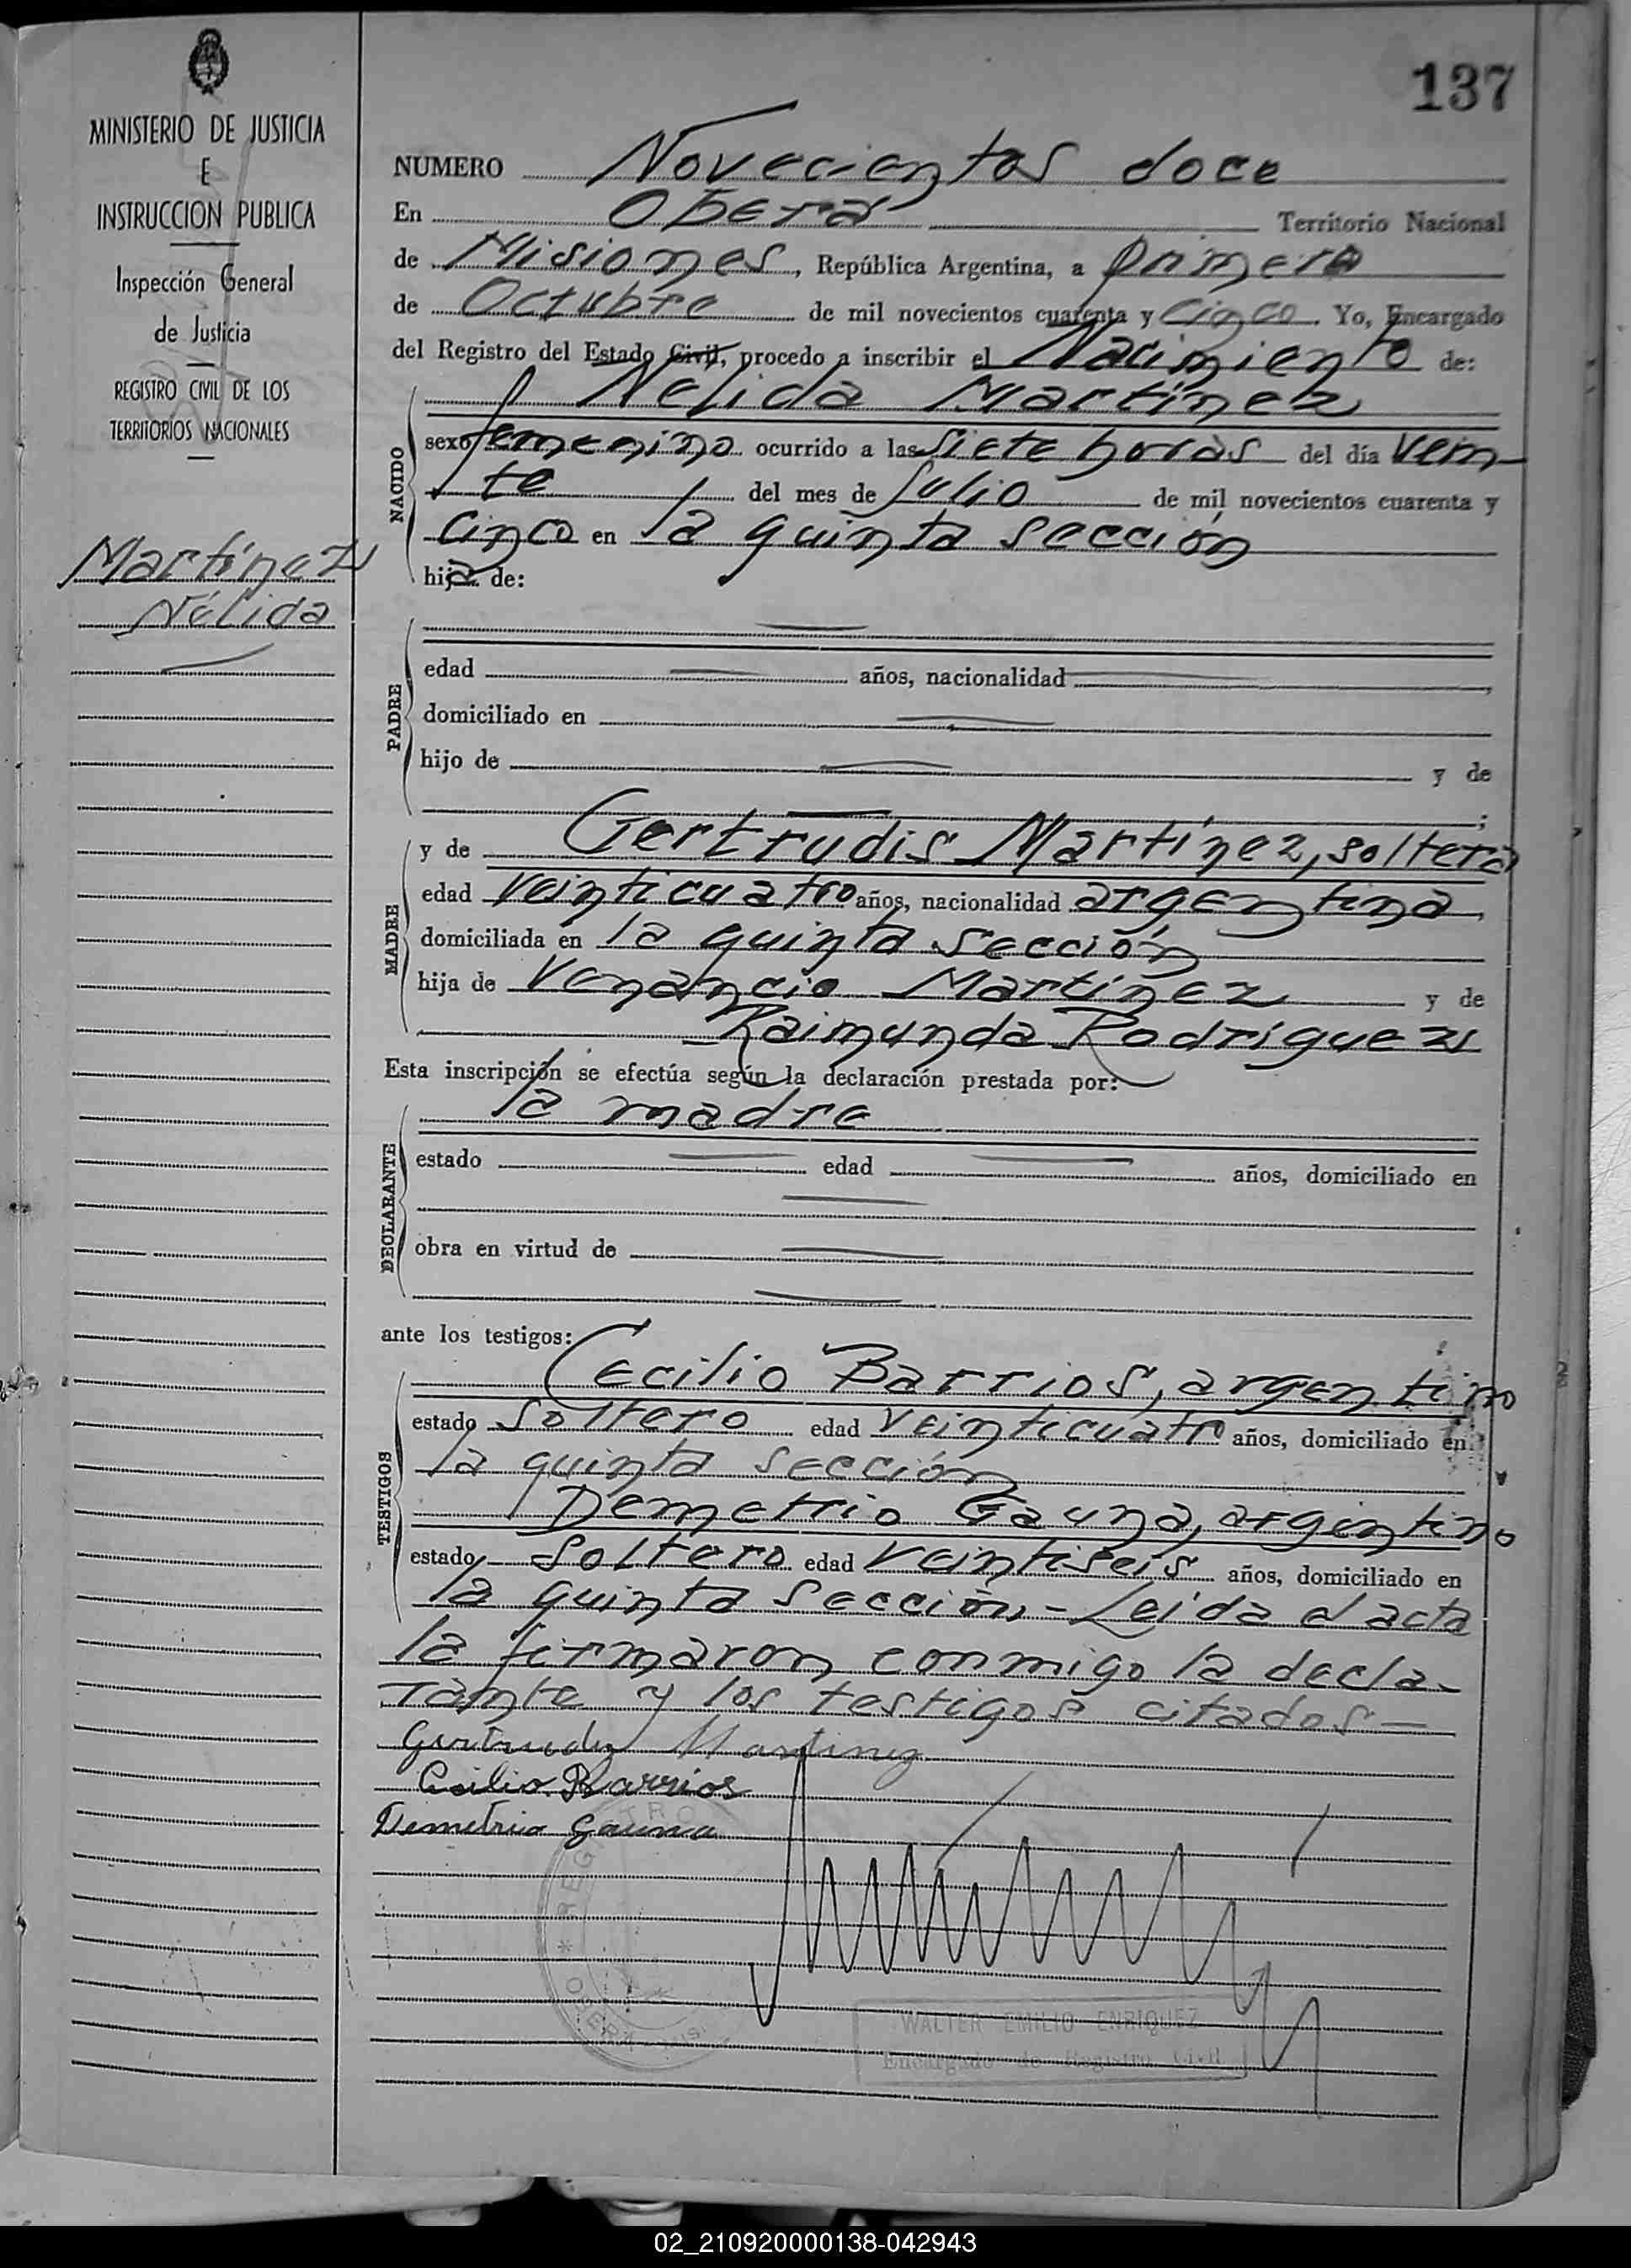 137
MINISTERIO DE JUSTICIA
E
INSTRUCCION PUBLICA
Inspección General
de Justicia
REGISTRO CIVIL DE LOS
TERRITORIOS NACIONALES
Martínez
Nélida
NUMERO Novecientos doce
En Oberá Territorio Nacional
de Misiones, República Argentina, a primero
de Octubre de mil novecientos cuarenta y cinco. Yo, Encargado
del Registro del Estado Civil, procedo a inscribir el Nacimiento de:
NACIDO
Nélida Martínez
sexo femenino ocurrido a las siete horas del día vein-
te del mes de Julio de mil novecientos cuarenta y
cinco en la quinta sección
hija de:
PADRE
edad años, nacionalidad
domiciliado en
hijo de y de
;
MADRE
y de Gertrudis Martínez, soltera
edad veinticuatro años, nacionalidad argentina,
domiciliada en la quinta sección
hija de Venancio Martínez y de
Raimunda Rodríguez
Esta inscripción se efectúa según la declaración prestada por:
DECLARANTE
la madre
estado edad años, domiciliado en
obra en virtud de
ante los testigos:
TESTIGOS
Cecilio Barrios, argentino
estado soltero edad veinticuatro años, domiciliado en
la quinta sección
Demetrio Gauna, argentino
estado soltero edad veintiseis años, domiciliado en
la quinta sección,- Leida el acta
la firmaron conmigo la decla-
rante y los testigos citados-
Gertrudis Martinez
Cecilio Barrios
Demetrio Gauna
REGISTRO
OBERA
WALTER EMILIO ENRIQUEZ
Encargado de Registro Civil
02_210920000138-042943